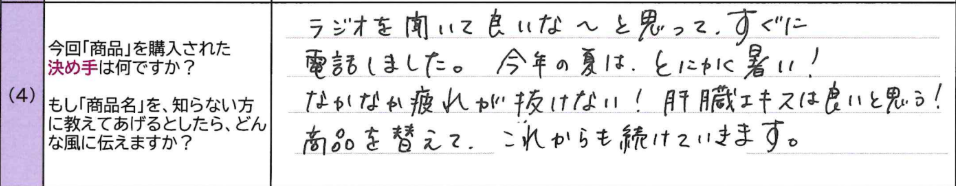 (4)
今回「商品」を購入された
決め手は何ですか?
もし「商品名」を、知らない方
に教えてあげるとしたら、どん
な風に伝えますか?
ラジオを聞いて良いな〜と思って、すぐに
電話しました。今年の夏は、とにかく暑い!
なかなか疲れが抜けない!肝臓エキスは良いと思う!
商品を替えて、これからも続けていきます。